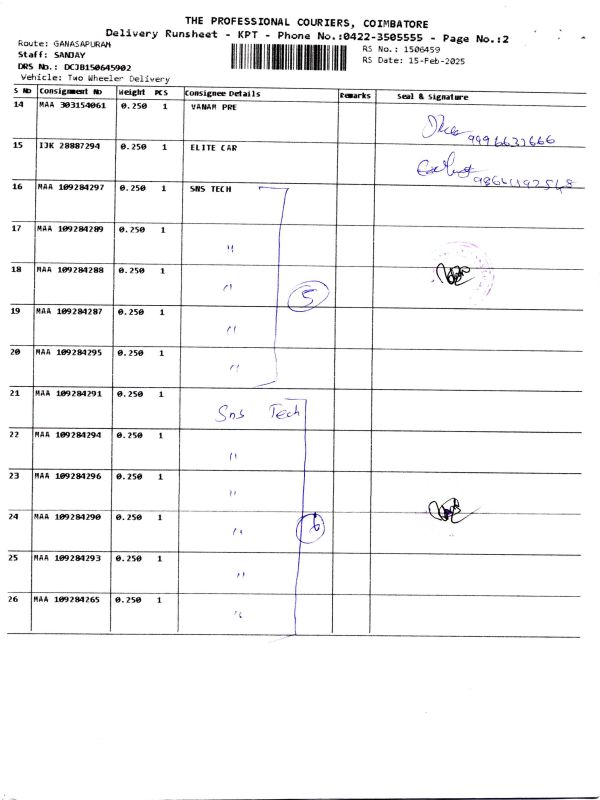 THE PROFESSIONAL COURIERS, COIMBATORE
Delivery Runsheet - KPT - Phone No.:0422-3505555 - Page No.:2
Route: GANASAPURAM
RS No.: 1506459
Staff: SANJAY
RS Date: 15-Feb-2025
DRS No.: DCJB150645902
Vehicle: Two Wheeler Delivery
S No Consignment No Weight PCS Consignee Details Remarks Seal & Signature
14 MAA 303154061 0.250 1 VANAM PRE
15 IJK 28887294 0.250 1 ELITE CAR
16 MAA 109284297 0.250 1 SNS TECH
17 MAA 109284289 0.250 1 "
18 MAA 109284288 0.250 1 "
5
19 MAA 109284287 0.250 1 "
20 MAA 109284295 0.250 1 "
21 MAA 109284291 0.250 1 Sns Tech
22 MAA 109284294 0.250 1 "
23 MAA 109284296 0.250 1 "
24 MAA 109284290 0.250 1 " 6
25 MAA 109284293 0.250 1 "
26 MAA 109284265 0.250 1 "